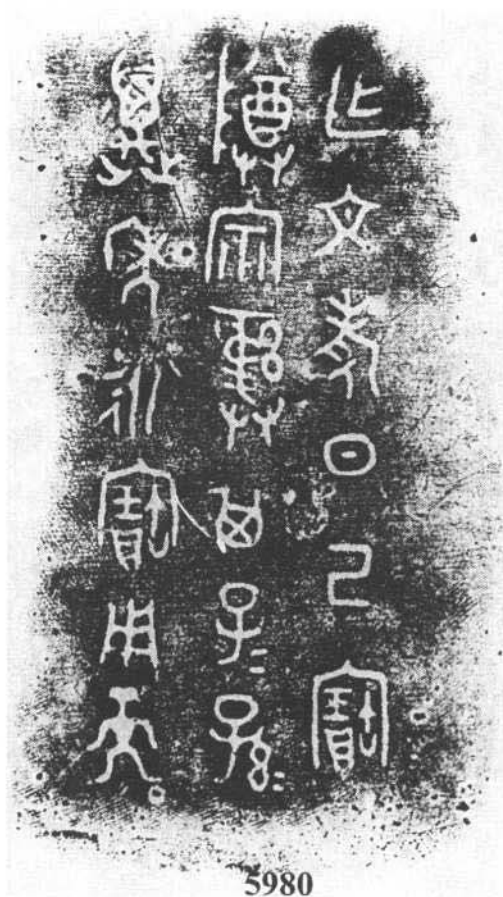 乍文考日己寶
尊宗彝其子＝孫＝
萬年永寶用天
5980